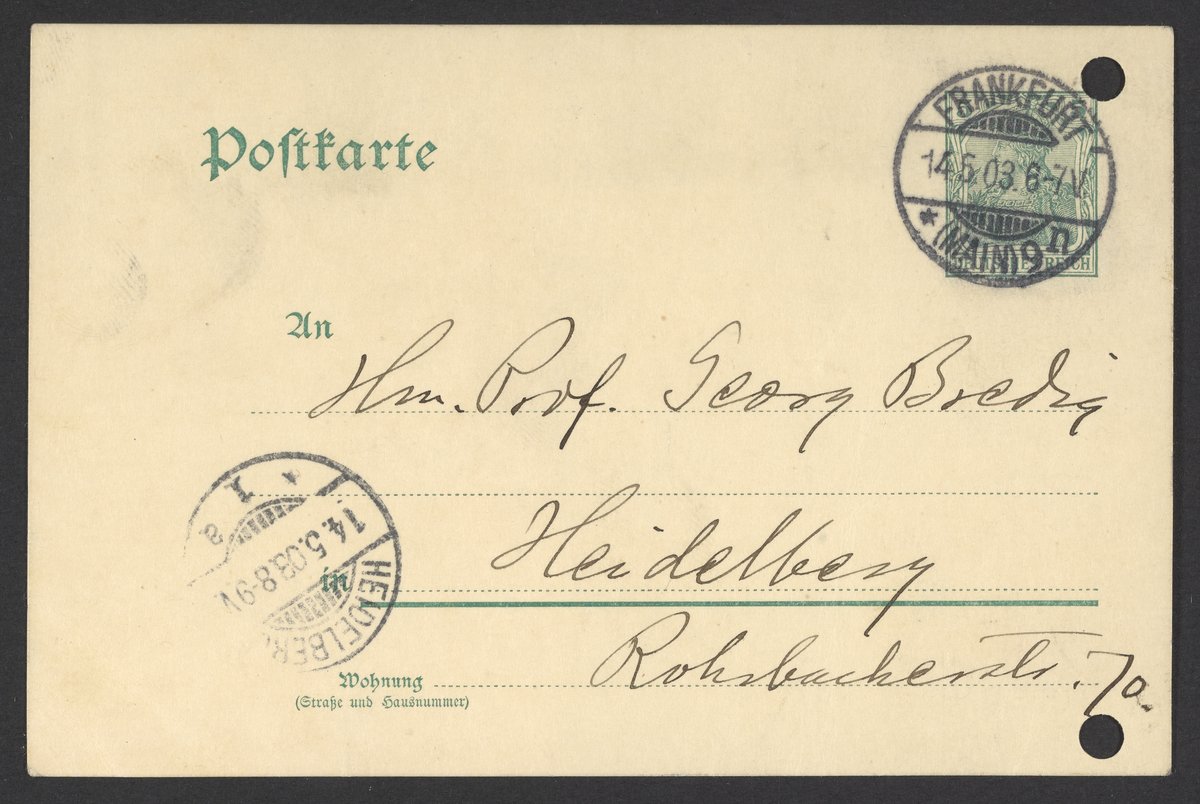 Postkarte
FRANKFURT
14.5.03.6-7V.
* (MAIN) 9 n
DEUTSCHES REICH
An
Hrn. Prof. Georg Bredig
Heidelberg
in
HEIDELBERG
14.5.03.8-9V
* 1 a
Rohrbacherstr.
Wohnung
(Straße und Hausnummer)